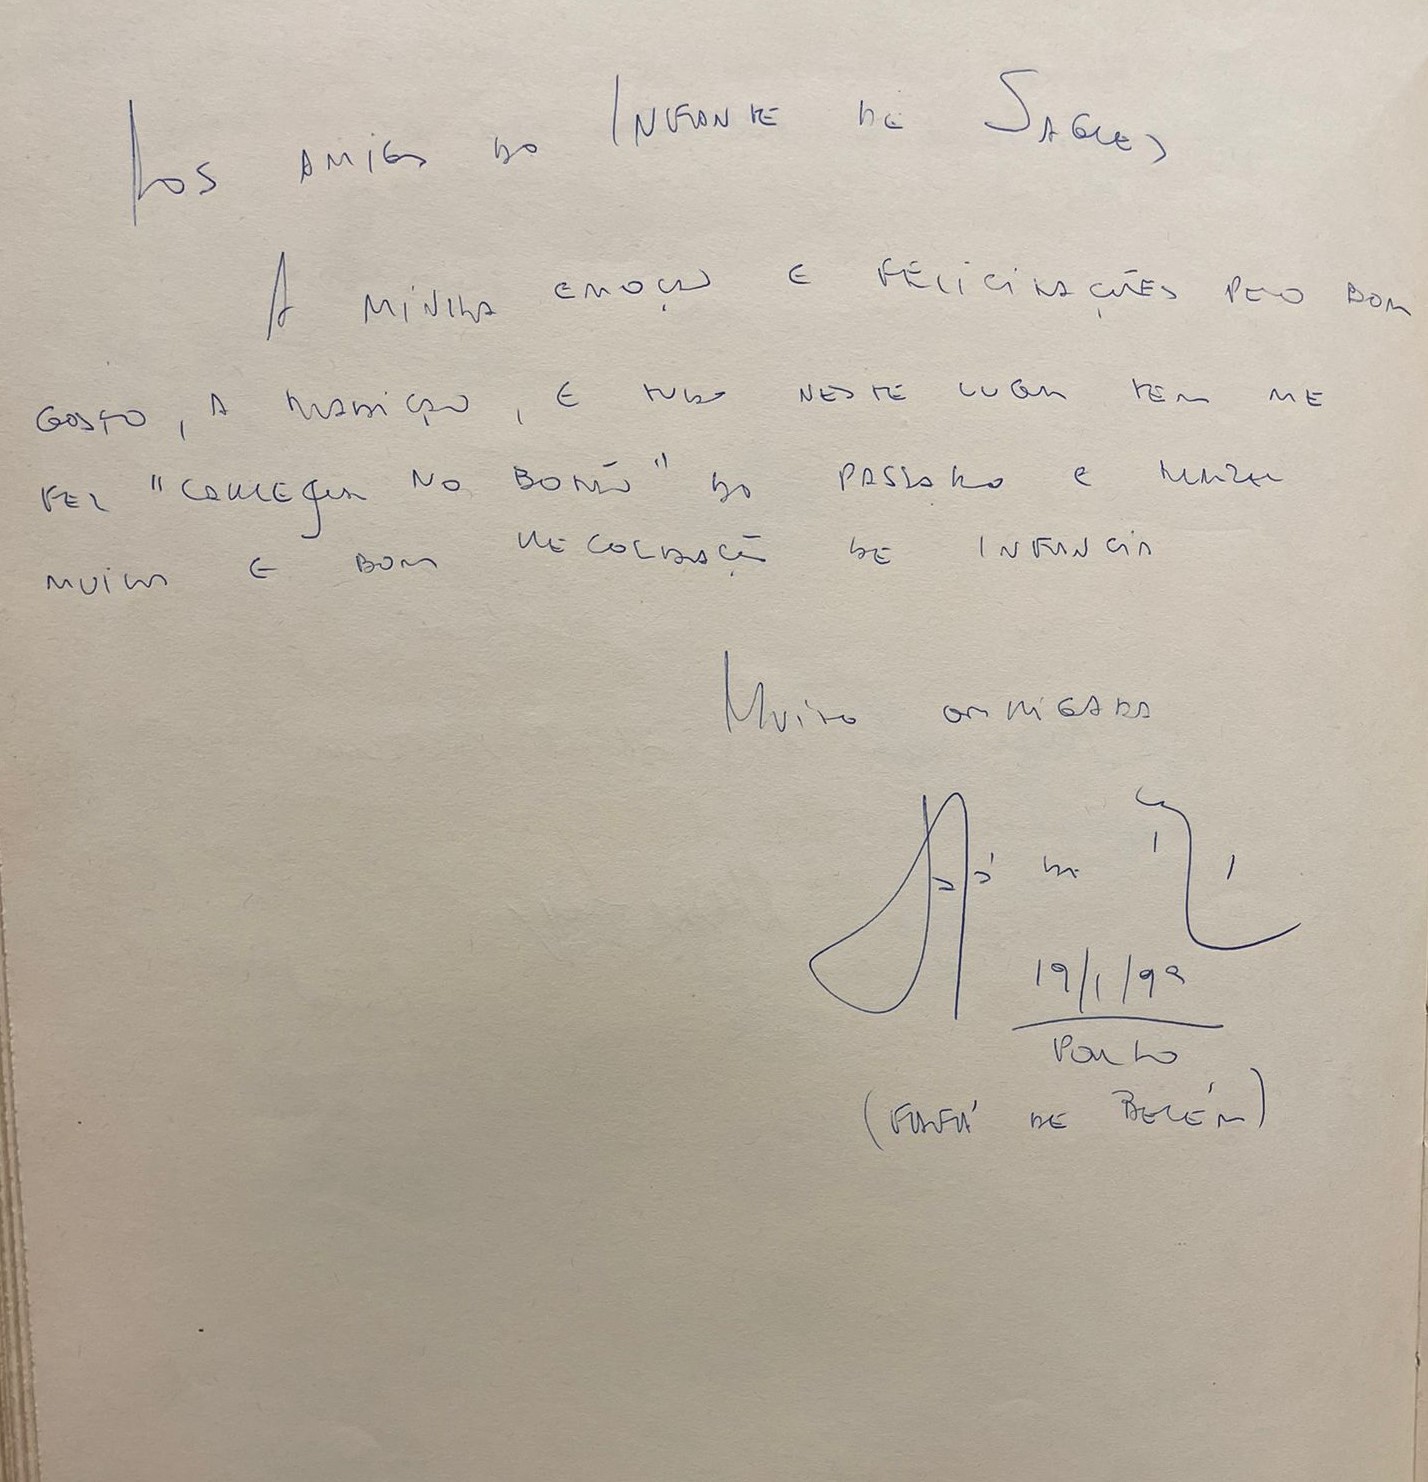 Aos amigos do Infante de Sagres
A minha emoção e felicitações pelo bom
gosto, a tradição, e tudo neste lugar tem me
fez "carregar no botão" do passado e trazer
muita e boa recordação de infancia
Muito obrigada
Fafá de
19/1/99
Porto
(Fafá de Belém)